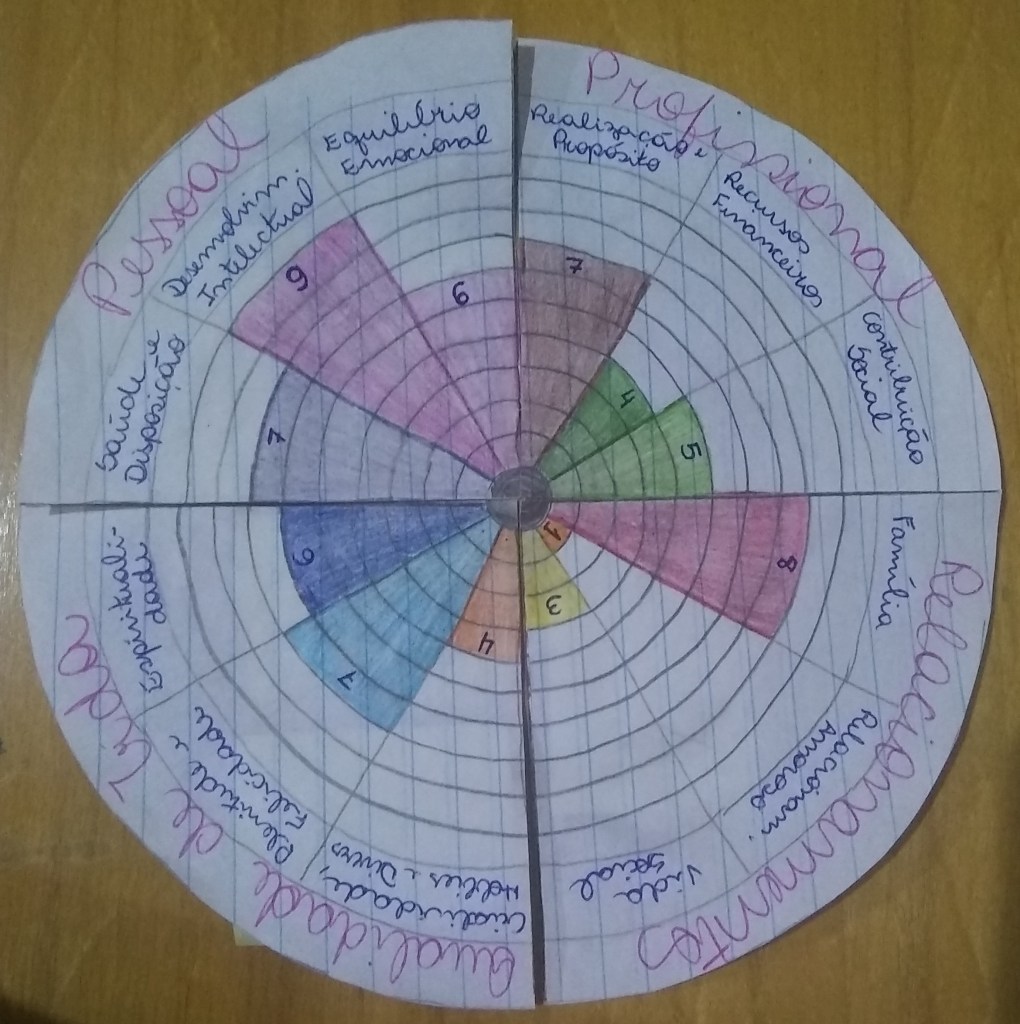 Pessoal
Equilíbrio
Emocional
6
Desenvolvim.
Intelectual
9
Saúde e
Disposição
7
Profissional
Realização e
Propósito
7
Recursos
Financeiros
4
Contribuição
Social
5
Relacionamentos
Família
8
Relacionam.
Amoroso
1
Vida
Social
3
Qualidade de Vida
Criatividade,
Hobbies e Divers
4
Plenitude e
Felicidade
7
Espirituali-
dade
6